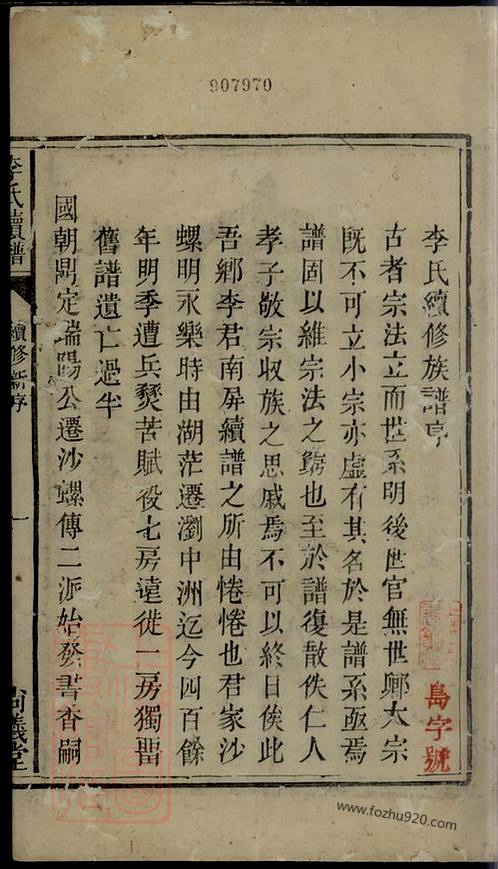 907970
李氏續修族譜序
古者宗法立而世系明後世官無世卿大宗
旣不可立小宗亦虛有其名於是譜系亟焉
譜固以維宗法之窮也至於譜復散佚仁人
孝子敬宗收族之思戚焉不可以終日俟此
吾鄉李君南屏續譜之所由惓惓也君家沙
螺明永樂時由湖茫遷瀏中洲迄今四百餘
年明季遭兵燹苦賦役七房遠徙一房獨畱
舊譜遺亡過半
國朝鼎定端陽公遷沙螺傳二派始發書香嗣
李氏續譜
續修新序
一
尚義堂
島字號
www.fozhu920.com